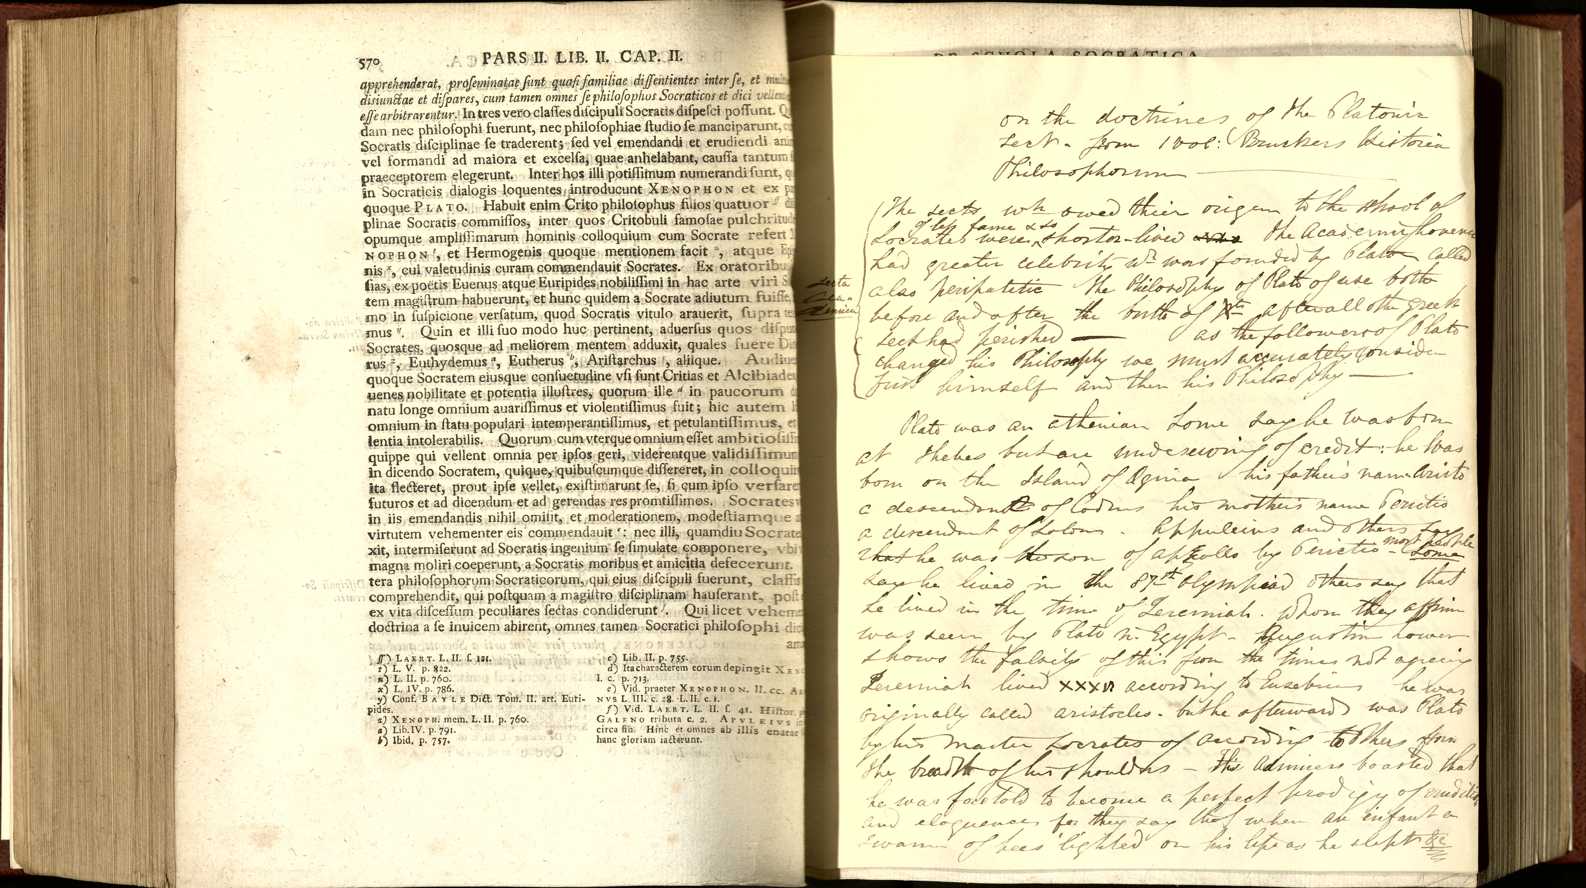 570
PARS II. LIB. II. CAP. II.
apprehenderat, proſeminatae ſunt quaſi familiae diſſentientes inter ſe, et
disiunctae et diſpares, cum tamen omnes ſe philoſophos Socraticos et dici
eſſe arbitrarentur. In tres vero claſſes diſcipuli Socratis diſpeſci poſſunt.
dam nec philoſophi fuerunt, nec philoſophiae ſtudio ſe manciparunt,
Socratis diſciplinae ſe traderent; ſed vel emendandi et erudiendi
vel formandi ad maiora et excelſa, quae anhelabant, cauſſa tantum
praeceptorem elegerunt. Inter hos illi potiſſimum numerandi ſunt,
in Socraticis dialogis loquentes introducunt XENOPHON et ex
quoque PLATO. Habuit enim Crito philoſophus filios quatuor
plinae Socratis commiſſos, inter quos Critobuli famoſae
opumque ampliſſimarum hominis colloquium cum Socrate refert
NOPHON, et Hermogenis quoque mentionem facit, atque
nis, cui valetudinis curam commendauit Socrates. Ex
ſias, ex poëtis Euenus atque Euripides nobiliſſimi in hac arte viri
tem magiſtrum habuerunt, et hunc quidem a Socrate adiutum fuiſſe,
mo in ſuſpicione verſatum, quod Socratis vitulo arauerit, ſupra
mus. Quin et illi ſuo modo huc pertinent, aduerſus quos
Socrates, quosque ad meliorem mentem adduxit, quales fuere
rus, Euthydemus, Eutherus, Ariſtarchus, aliique.
quoque Socratem eiusque conſuetudine vſi ſunt Critias et
uenes nobilitate et potentia illuſtres, quorum ille in paucorum
natu longe omnium auariſſimus et violentiſſimus fuit; hic autem
omnium in ſtatu populari intemperantiſſimus, et petulantiſſimus,
lentia intolerabilis. Quorum cum vterque omnium eſſet
quippe qui vellent omnia per ipſos geri, viderentque
in dicendo Socratem, quique, quibuſcumque diſſereret, in
ita flecteret, prout ipſe vellet, exiſtimarunt ſe, ſi cum ipſo
futuros et ad dicendum et ad gerendas res promtiſſimos.
in iis emendandis nihil omiſit, et moderationem, modeſtiamque
virtutem vehementer eis commendauit: nec illi, quamdiu
xit, intermiſerunt ad Socratis ingenium ſe ſimulate componere,
magna moliri coeperunt, a Socratis moribus et amicitia defecerunt.
tera philoſophorum Socraticorum, qui eius diſcipuli fuerunt,
comprehendit, qui poſtquam a magiſtro diſciplinam hauſerant,
ex vita diſceſſum peculiares ſectas condiderunt. Qui licet
doctrina a ſe inuicem abirent, omnes tamen Socratici philoſophi
LAERT. L. II. ſ. 121.
t) L. V. p. 822.
u) L. II. p. 760.
x) L. IV. p. 786.
y) Conf. BAYLE Dict. Tom. II. art. Euri-
pides.
z) XENOPH. mem. L. II. p. 760.
a) Lib. IV. p. 791.
b) Ibid. p. 757.
c) Lib. II. p. 755.
d) Ita characterem eorum depingit
l. c. p. 713.
e) Vid. praeter XENOPHON. ll. cc.
NVS L. III. c. 28. L. II. c. 1.
f) Vid. LAERT. L. II. ſ. 41.
GALENO tributa c. 2. APVLEIVS
circa fin. Hinc et omnes ab illis
hanc gloriam iactarunt.
DE SCHOLA SOCRATICA
on the doctrines of the Platonic
sect - from 1 vol: Bruckers Historia
Philosophorum
The sects wh owed their origen to the school of
of less fame & so
Socrates were shorter-lived The Academy however
had greater celebrity wh was founded by Plato called
also peripatetic The Philosophy of Plato of use both
before and after the birth of Xt after all oth greek
sects had perished as the followers of Plato
changed his Philosophy we must accurately consider
first himself and then his Philosophy
Plato was an athenian some say he was born
at Thebes but are undeserving of credit: he was
born on the Island of Ægina his father's name Aristo
a descendant of Codrus his mother's name Perictis
a descendant of Solons. Appuleius and others say
most people
that he was the son of Apollo by Perictis - some
say he lived in the 87th olympiad others say that
he lived in the time of Jeremiah. whom they affirm
was seen by Plato in Egypt - Augustin however
shows the falsity of this from the times not agreeing
Jeremiah lived according to Eusebius he was
originally called aristocles - but he afterwards was Plato
by his master Socrates or according to others from
the breadth of his shoulders - His Admirers boasted that
he was foretold to become a perfect prodigy of erudition
and eloquence for they say that when an infant a
swarm of bees lighted on his lips as he slept &c